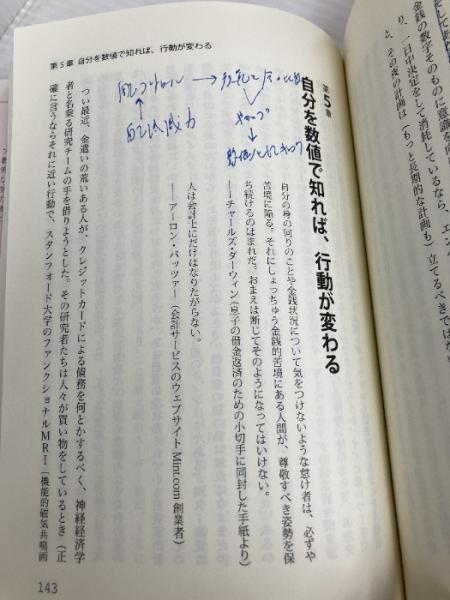 第5章 自分を数値で知れば、行動が変わる
金銭の数字そのものに意識を向
り、一日中決定をして消耗しているなら、エン
う、その夜の計画は(もっと長期的な計画も)立てるべきでは
第5章
自分を数値で知れば、行動が変わる
自分の身の回りのことや金銭状況について気をつけないような怠け者は、必ずや
苦境に陥る。それにしょっちゅう金銭的苦境にある人間が、尊敬すべき姿勢を保
ち続けるのはまれだ。おまえは断じてそのようになってはいけない。
――チャールズ・ダーウィン(息子の借金返済のための小切手に同封した手紙より)
人は会計士にだけはなりたがらない。
――アーロン・パッツァー(会計サービスのウェブサイトMint.com創業者)
つい最近、金遣いの荒いある人が、クレジットカードによる債務を何とかするべく、神経経済学
者と名乗る研究チームの手を借りようとした。その研究者たちは人々が買い物をしているとき(正
確に言うならそれに近い行動で、スタンフォード大学のファンクショナルMRI[機能的磁気共鳴画
143